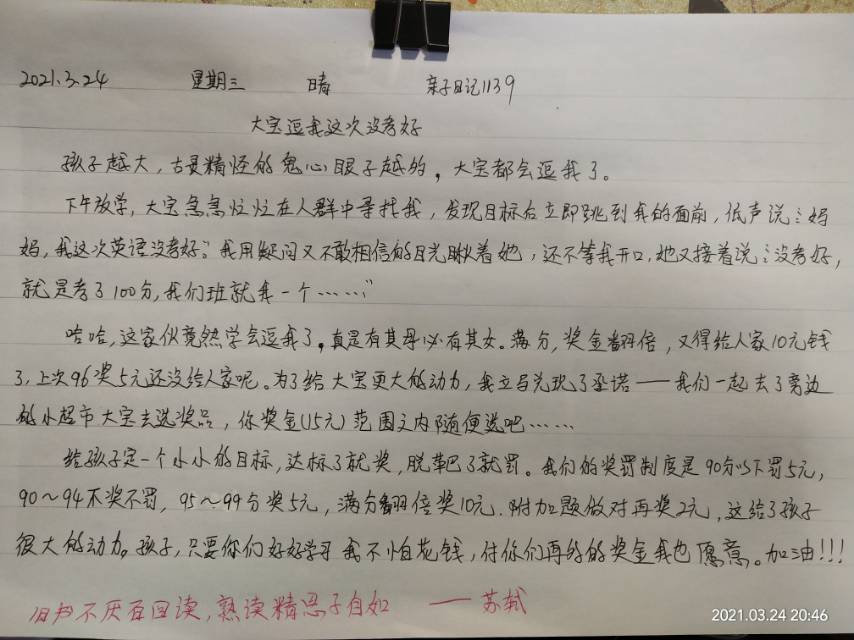 2021.3.24 星期三 晴 亲子日记1139
大宝逗我这次没考好
孩子越大，古灵精怪的鬼心眼子越的，大宝都会逗我了。
下午放学，大宝急急忙忙在人群中寻找我，发现目标后立即跳到我的面前，低声说：妈
妈，我这次英语没考好；我用疑问又不敢相信的目光瞅着她，还不等我开口，她又接着说：没考好，
就是考了100分，我们班就我一个……"
哈哈，这家伙竟然学会逗我了，真是有其母必有其女。满分，奖金翻倍，又得给人家10元钱
了，上次96奖5元还没给人家呢。为了给大宝更大的动力，我立马兑现了承诺——我们一起去了旁边
的小超市大宝去选奖品，你奖金(15元)范围之内随便选吧……
给孩子定一个小小的目标，达标了就奖，脱靶了就罚。我们的奖罚制度是90分以下罚5元，
90～94不奖不罚，95～99分奖5元，满分翻倍奖10元．附加题做对再奖2元，这给了孩子
很大的动力。孩子，只要你们好好学习我不怕花钱，付你们再的的奖金我也愿意。加油!!!
旧书不厌百回读，熟读精思子自知 ——苏轼
2021.03.24 20:46